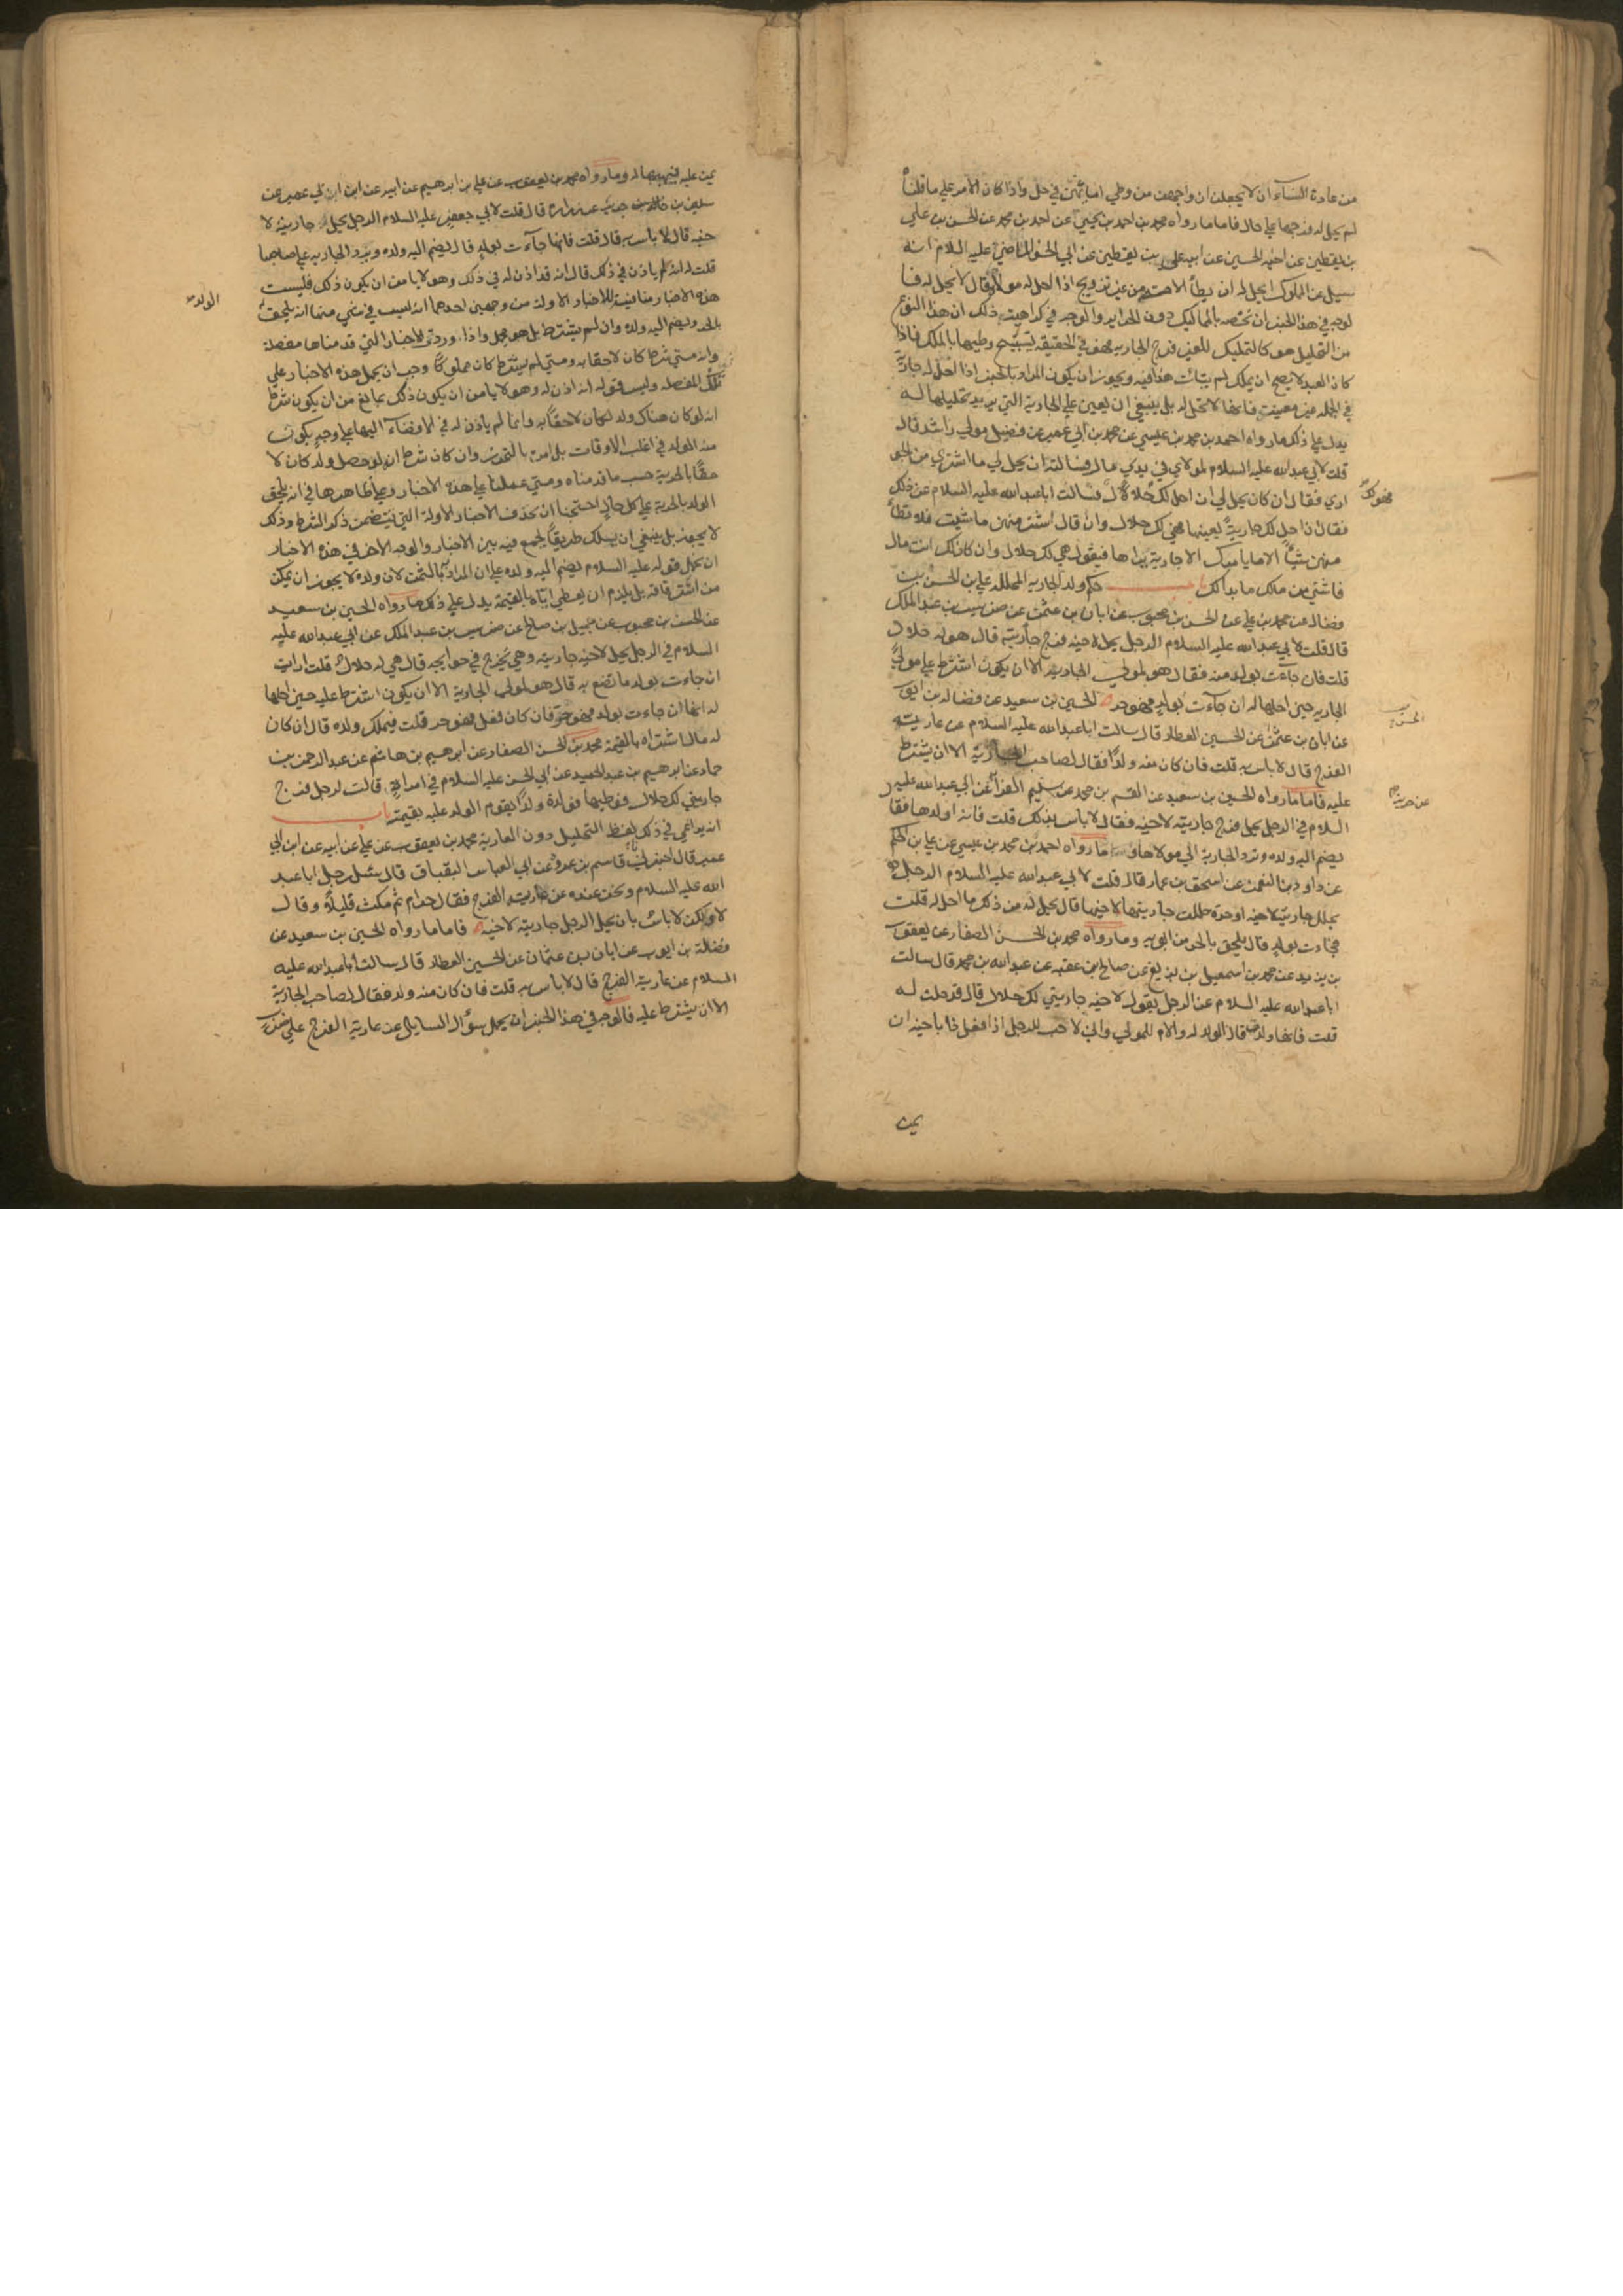 من عادة النساء ان لا يجعلن ازواجهن من وطي امائهن في حل واذا كان الامر علي ما قلناه
لم يحل له فرجها علي حال فاما ما رواه محمد بن احمد بن يحيي عن احمد بن محمد عن الحسن بن علي
بن يقطين عن اخيه الحسين عن ابيه علي بن يقطين عن ابي الحسن الماضي عليه السلام انه
سيل عن المملوك ايحل له ان يطأ الامة من غير تزويج اذا احل له مولاه قال لا يحل له فا
لوجه في هذا الخبر ان نخصه بالمماليك دون الحراير والوجه في كراهيت ذلك ان هذا النوع
من التحليل هو كالتمليك للغير فرج الجاريه فهو في الحقيقه يستبيح وطيها بالملك فاذا
كان العبد لا يصح ان يملك لم يتأت هذا فيه ويجوز ان يكون المراد بالخبر اذا احل له جارية
في الجمله غير معينة فانها لا تحل له بل ينبغي ان يعين علي الجارية التي يريد تحليلها له
يدل علي ذلك ما رواه احمد بن محمد بن عيسي عن محمد بن ابي عمير عن فضيل مولي راشد قال
قلت لابي عبدالله عليه السلام لمولاي في يدي مال فسالته ان يحل لي ما اشتري من الجو
اري فقال ان كان يحل لي ان احل لك فهو لك حلال فسالت اباعبدالله عليه السلام عن ذلك
فقال ان احل لك جارية بعينها فهي لك حلال وان قال اشتر منهن ما شيت فلا تطأ
منهن شيئا الا ما يامرك الا جارية يراها فيقول هي لك حلال وان كان لك انت مال
فاشتر من مالك ما بدا لك باب حكم ولد الجاريه المحلله علي بن الحسن بن
فضال عن محمد بن علي عن الحسن بن محبوب عن ابان بن عثمن عن ضريس بن عبدالملك
قال قلت لابي عبدالله عليه السلام الرجل يحل لاخيه فرج جاريته قال هو له حلال
قلت فان جاءت بولد منه فقال هو لمولي الجاريه الا ان يكون اشترط علي مولي
الجاريه حين احلها له ان جاءت بولد فهو حر الحسين بن سعيد عن فضاله بن ايوب
عن ابان بن عثمن عن الحسين العطار قال سالت اباعبدالله عليه السلام عن عارية
الفرج قال لا باس به قلت فان كان منه ولدا فقال لصاحب الجارية الا ان يشترط
عليه فاما ما رواه الحسين بن سعيد عن القسم بن محمد عن سليم الفراء عن ابي عبدالله عليه
السلام في الرجل يحل فرج جاريته لاخيه فقال لا باس بذلك قلت فانه اولدها فقا
يضم اليه ولده وترد الجارية الي مولاها وما رواه احمد بن محمد بن عيسي عن علي بن الحكم
عن داود بن النعمن عن اسحق بن عمار قال قلت لابي عبدالله عليه السلام الرجل
يحلل جاريته لاخيه او حرة حللت جاريتها لاخيها قال يحل له من ذلك ما احل له قلت
فجاءت بولد قال يلحق بالحر من ابويه وما رواه محمد بن الحسن الصفار عن يعقوب
بن يزيد عن محمد بن اسمعيل بن بزيع عن صالح بن عقبه عن عبدالله بن محمد قال سالت
اباعبدالله عليه السلام عن الرجل يقول لاخيه جاريتي لك حلال قال قد حلت له
قلت فانها ولدت قال الولد له والام للمولي واني لاحب للرجل اذا فعل ذا باخيه ان
يمن
فهو لك
الحسن
عن حريز
يمن عليه فيهبها له وما رواه محمد بن يعقوب عن علي بن ابرهيم عن ابيه عن ابن ابي عمير عن
سليم بن عن زرارة قال قلت لابي جعفر عليه السلام الرجل يحل جاريته لا
خيه قال لا باس به قال قلت فانها جاءت بولد قال يضم اليه ولده وترد الجاريه علي صاحبها
قلت له انه لم ياذن في ذلك قال انه قد اذن له في ذلك وهو لا يامن ان يكون ذلك فليست
هذه الاخبار منافية للاخبار الاولة من وجهين احدهما انه ليس في شي منها انه يلحق
بالحر ويضم اليه ولده وان لم يشترط بل هو مجمل واذا وردت الاخبار التي قدمناها مفصلة
وانه متي شرط كان لاحقا به ومتي لم يشترط كان مملوكا وجب ان يحمل هذه الاخبار علي
تلك المفصله وليس قوله انه اذن له وهو لا يامن ان يكون ذلك بمانع من ان يكون شرط
انه لو كان هناك ولد لكان لاحقا به وانما لم ياذن له في الافضاء اليها علي وجه يكون
منه الولد في اغلب الاوقات بل امره بالتحرز وان كان شرط ان لو حصل ولد كان لا
حقا بالحرية حسب ما قدمناه ومتي عملنا علي هذه الاخبار وعلي ظاهرها في انه يلحق
الولد بالحرية علي كل حال احتجنا ان نحذف الاخبار الاولة التي تتضمن ذكر الشرط وذلك
لا يجوز بل ينبغي ان يسلك طريقا يجمع فيه بين الاخبار والوجه الاخر في هذه الاخبار
ان نحمل قوله عليه السلام يضم اليه ولده علي ان المراد بالثمن لان ولده لا يجوز ان يمكن
من استرقاقه بل يلزم ان يعطي اياه بالقيمة يدل علي ذلك ما رواه الحسين بن سعيد
عن الحسن بن محبوب عن جميل بن صالح عن ضريس بن عبد الملك عن ابي عبدالله عليه
السلام في الرجل يحل لاخيه جاريته وهي تخرج في حوايجه قال هي له حلال قلت ارايت
ان جاءت بولد ما تصنع به قال هو لمولي الجارية الا ان يكون اشترط عليه حين احلها
له انها ان جاءت بولد فهو حر فان كان فعل فهو حر قلت فيملك ولده قال ان كان
له مال اشتراه بالقيمة محمد بن الحسن الصفار عن ابرهيم بن هاشم عن عبد الرحمن بن
حماد عن ابرهيم بن عبدالحميد عن ابي الحسن عليه السلام في امراة قالت لرجل فرج
جاريتي لك حلال فوطيها فولدت ولدا يقوم الولد عليه بقيمته باب
انه يراعي في ذلك لفظ التحليل دون العارية محمد بن يعقوب عن علي عن ابيه عن ابن ابي
عمير قال اخبرني قاسم بن عروة عن ابي العباس البقباق قال سئل رجل اباعبد
الله عليه السلام ونحن عنده عن عارية الفرج فقال حرام ثم مكث قليلا وقال
لا ولكن لا باس بان يحل الرجل جاريته لاخيه فاما ما رواه الحسين بن سعيد عن
فضالة بن ايوب عن ابان بن عثمان عن الحسين العطار قال سالت اباعبدالله عليه
السلام عن عارية الفرج قال لا باس به قلت فان كان منه ولد فقال لصاحب الجارية
الا ان يشترط عليه فالوجه في هذا الخبر ان يحمل سؤال السايل عن عارية الفرج علي ضرب
الولد